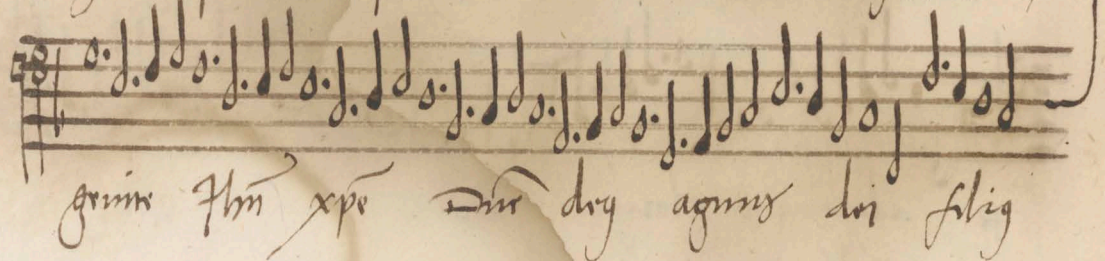 genite Jhũ xp̃e Dñe deꝯ agnus dei filiꝯ